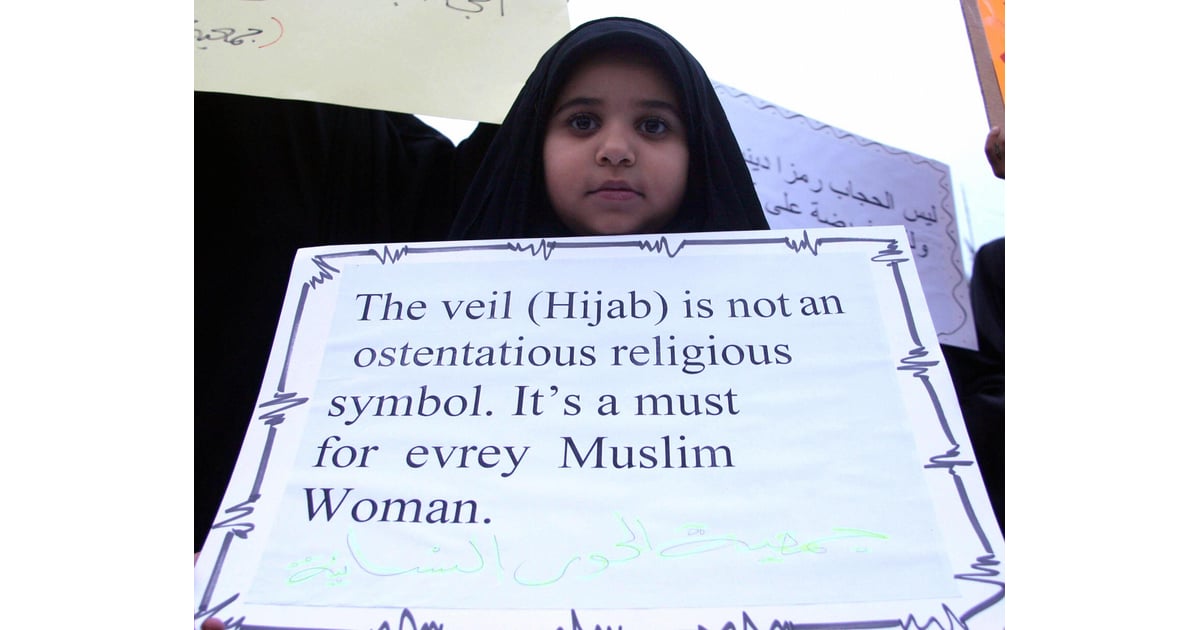 (جمعية
The veil (Hijab) is not an
ostentatious religious
symbol. It's a must
for evrey Muslim
Woman.
جمعية الحور النسائية
ليس الحجاب رمزا
على